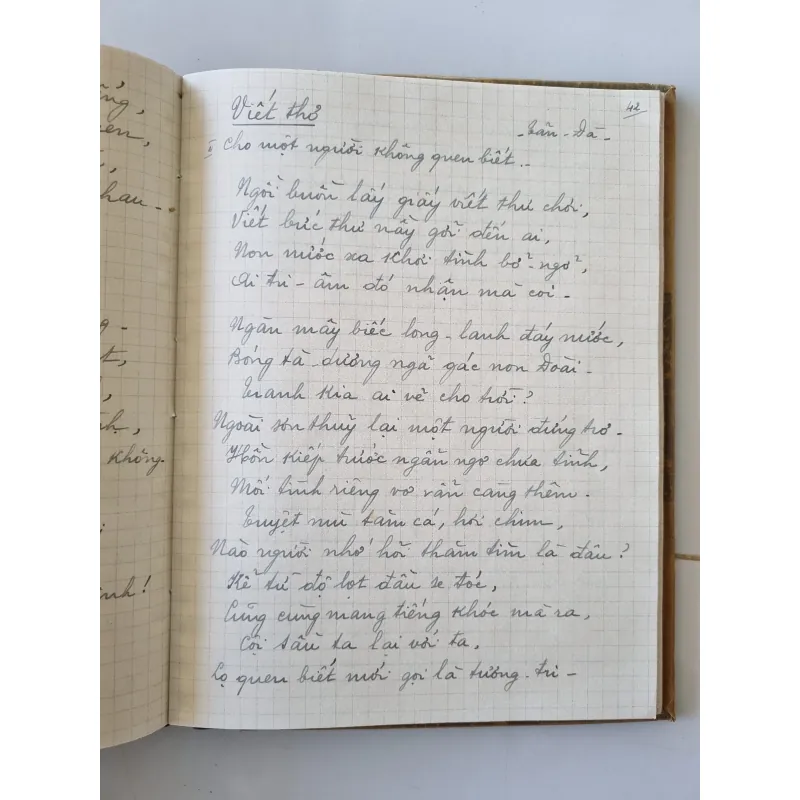 ổng,
en,
,
hau -
g -
t,
,
h,
không.
i
inh!
42
Viết thơ
- Tản - Đà -
Cho một người không quen biết..
Ngồi buồn lấy giấy viết thư chơi,
Viết bức thư nầy gởi đến ai,
Non nước xa khơi tình bở-ngở,
Ai tri - âm đó nhận mà coi -
Ngàn mây biếc long - lanh đáy nước,
Bóng tà - dương ngã gác non Đoài -
Tranh kia ai vẽ cho trời?
Ngoài sơn thuỷ lại một người đứng trơ -
Hồn kiếp trước ngẩn ngơ chưa tỉnh,
Mối tình riêng vơ vẩn càng thêm.
Tuyệt mù tăm cá, hơi chim,
Nào người nhớ hỏi thăm tìm là đâu?
Kể từ độ lọt đầu se tóc,
Cùng cùng mang tiếng khóc mà ra,
Cội sầu ta lại với ta,
Lọ quen biết mới gọi là tương - tri -